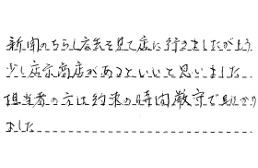 新聞のちらし広告を見て店に行きましたがもう
少し展示商店があるといいと思いました
担当者の方は約束の時間厳守で助かり
ました